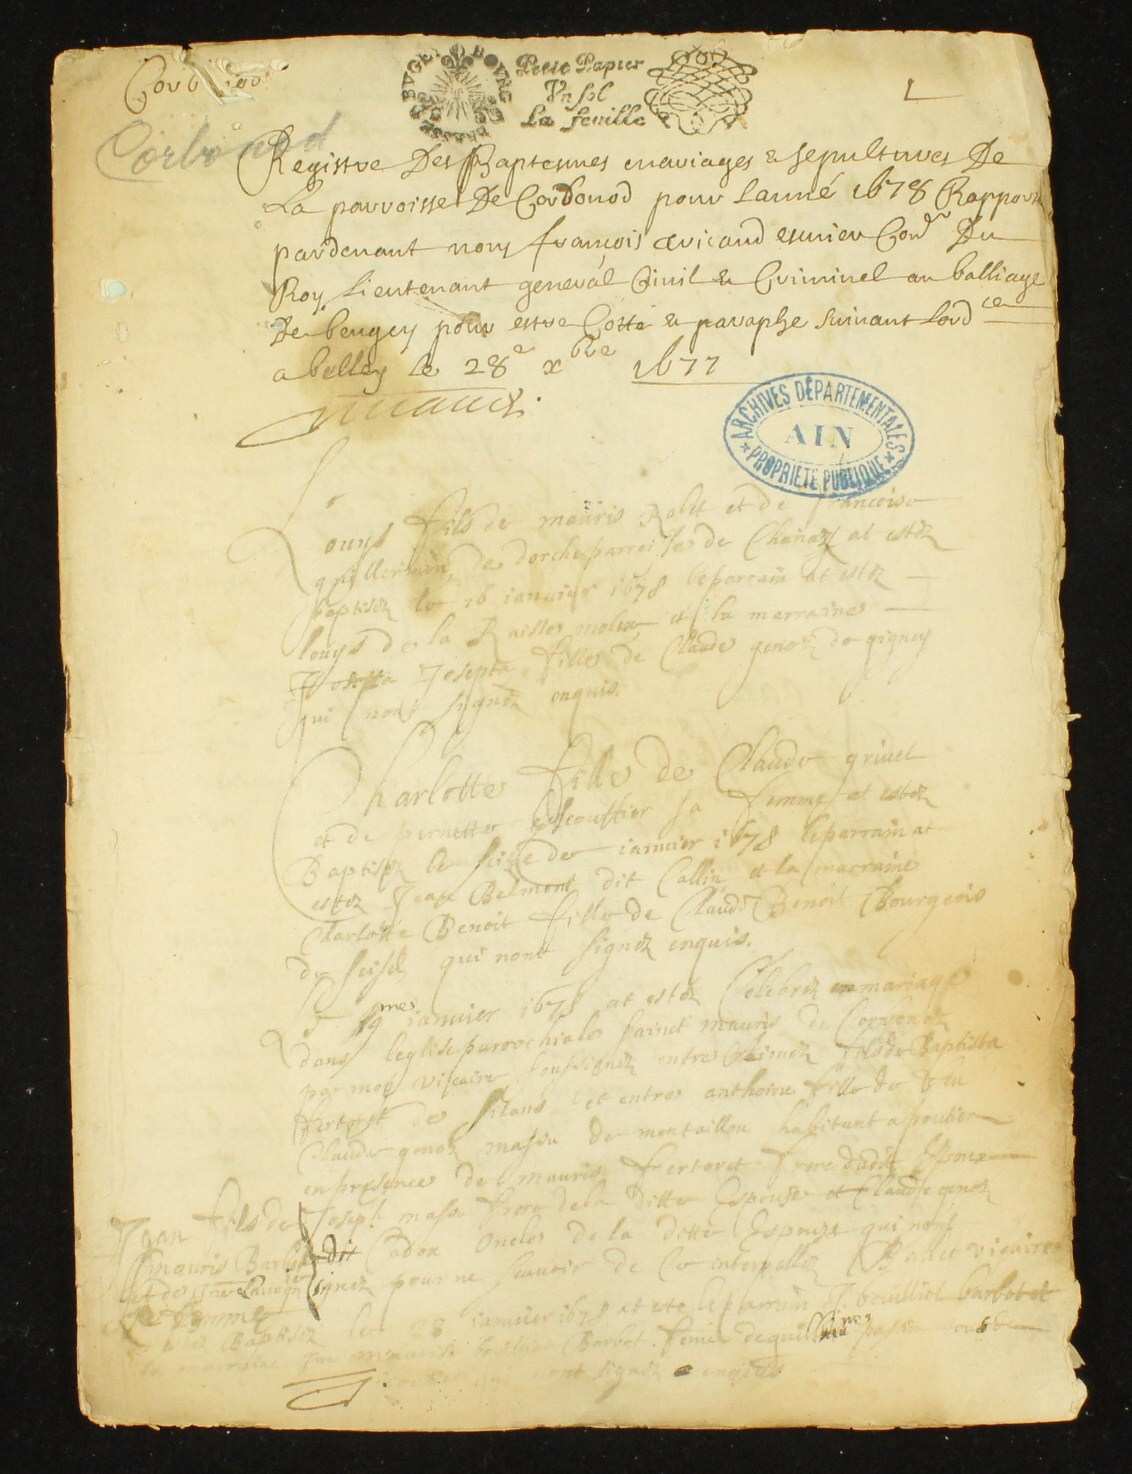 Corbonod
Petit Papier
Vn sol
La feuille
BVGEY BOVRG
Corbonod
Registre Des Baptesmes mariages & sepultures De
La parroisse De Corbonod pour Lanné 1678 Rapporté
pardeuant nous françois escuier Conˢʳ Du
Roy Lieutenant general Ciuil & Criminel au balliage
De beugey pour estre Cotté & paraphé suiuant Lordᶜᵉ
a belley le 28ᵉ xᵇʳᵉ 1677
ARCHIVES DÉPARTEMENTALES
AIN
PROPRIÉTÉ PUBLIQUE
Louys fils de mauris Robet et de francoise
guillermin de dorche parroisse de Chanay at estez
baptisez le 16 ianuier 1678 le parrain at estez
louys de la et la merraine
Josepta fille de Claude genod de gigney
qui nont signez enquis.
Charlotte fille de Claude griuet
et de pernette sa femme at estez
Baptisez le seize de ianuier 1678 le parrain at
estez Jean Belmont dit Callin et la marraine
Charlotte Benoit fille de Claude Benoit Bourgeois
de seissel qui nont signez enquis.
Le 19ᵐᵉˢ ianuier 1678 at estez Celebrez en mariage
dans leglise parrochiale sainct mauris de Corbonod
par moy vicaire soussignez entre fils de Baptista
fertoret de silans et entre anthoina fille de feu
Claude genod massu de montaillou habitant a
en presence de mauris fertoret frere dudit Espoux
Joseph massu frere de la ditte Espouse et Claude genod
dit Cadou oncle de la ditte Espouse qui nont
signez pour ne scauoir de Ce interpellez vicaire
Jean fils de
mauris Barbet
et de
sa femme
Baptisez le 28 ianuier 1678 at ete le parrain Barbet et
la marraine Barbet
nont signez enquis